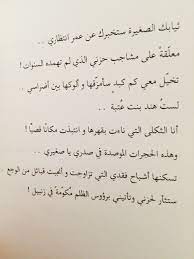 ثيابك الصغيرة ستخبرك عن عمر انتظاري ..
معلقةٌ على مشاجب حزني الذي لم تهمده السنوات!
تخيّل معي كم كبد سأمزقها و ألوكها بين أضراسي ..
لستُ هند بنت عُتبة ..
أنا الثكلى التي ناءت بقهرها و انتبذت مكاناً قصياً!
وهذه الحجرات الموصدة في صدري يا صغيري ..
تسكنها أشباح فقدي التي تزاوجت و أنجبت قبائل من الوجع
ستثأر لحزني وتأتيني برؤوس الظلم مكوّمةً في زنبيل!